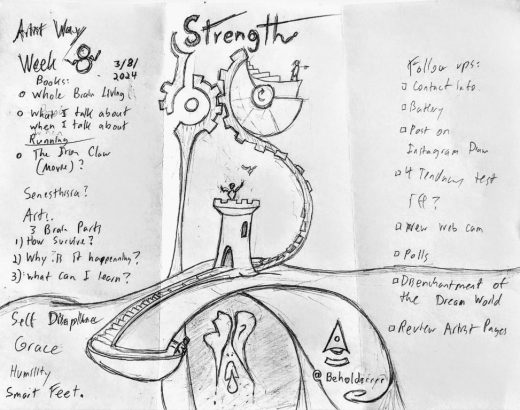 Artist Way
Week 8
3/8/
2024
Books:
o Whole Brain Living!
o What I talk about
when I talk about
Running
o The Iron Claw
(Movie)?
Senesthisia?
Arts.
3 Brain Parts
1) How Survive?
2) Why is it happening?
3) What can I learn?
Self Discipline
Grace
Humility
Smart Feet.
Strength
@Beholder
Follow ups:
Contact info.
Bakery
Post on
Instagram
4 Tendency test
New Web Cam
Polls
Disenchantment of
the Dream World
Review Artist Pages